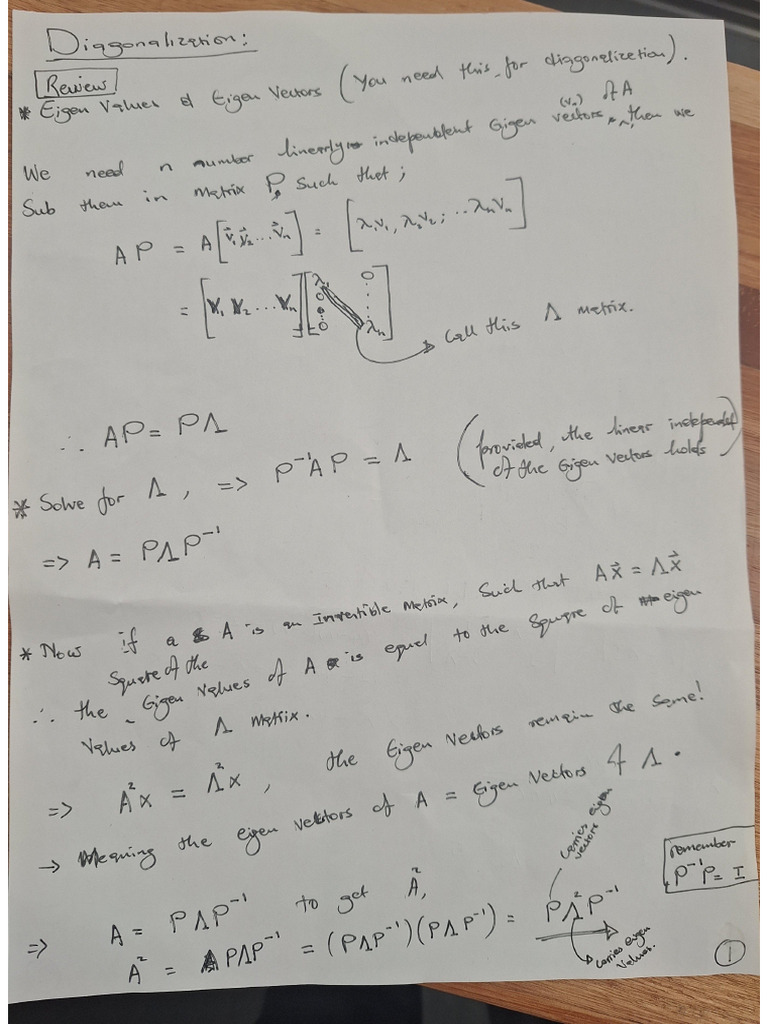 Diagonalization:
Review
* Eigen Values & Eigen Vectors (You need this for diagonalization).
We need n number linearly independent Eigen vectors (vₙ) of A, then we
Sub them in Matrix P, such that;
AP = A[v⃗₁ v⃗₂ ... v⃗ₙ] = [λ₁v₁, λ₂v₂; ... λₙvₙ]
= [V₁ V₂ ... Vₙ] [λ₁ 0 0 0 ... 0 λₙ] → Call this Λ matrix.
∴ AP = PΛ
* Solve for Λ, => P⁻¹AP = Λ (provided, the linear independent
of the Eigen vectors holds)
=> A = PΛP⁻¹
* Now if a A is an Invertible Matrix, Such that Ax⃗ = Λx⃗
∴ the Square of the Eigen Values of A is equal to the Square of eigen
Values of Λ matrix.
=> A²x = Λ²x, the Eigen Vectors remain the same!
→ Meaning the eigen vectors of A = Eigen Vectors of Λ.
=> A = PΛP⁻¹ to get A²,
A² = PΛP⁻¹ = (PΛP⁻¹)(PΛP⁻¹) = PΛ²P⁻¹
carries eigen
vectors
carries eigen
values.
remember
P⁻¹P = I
1